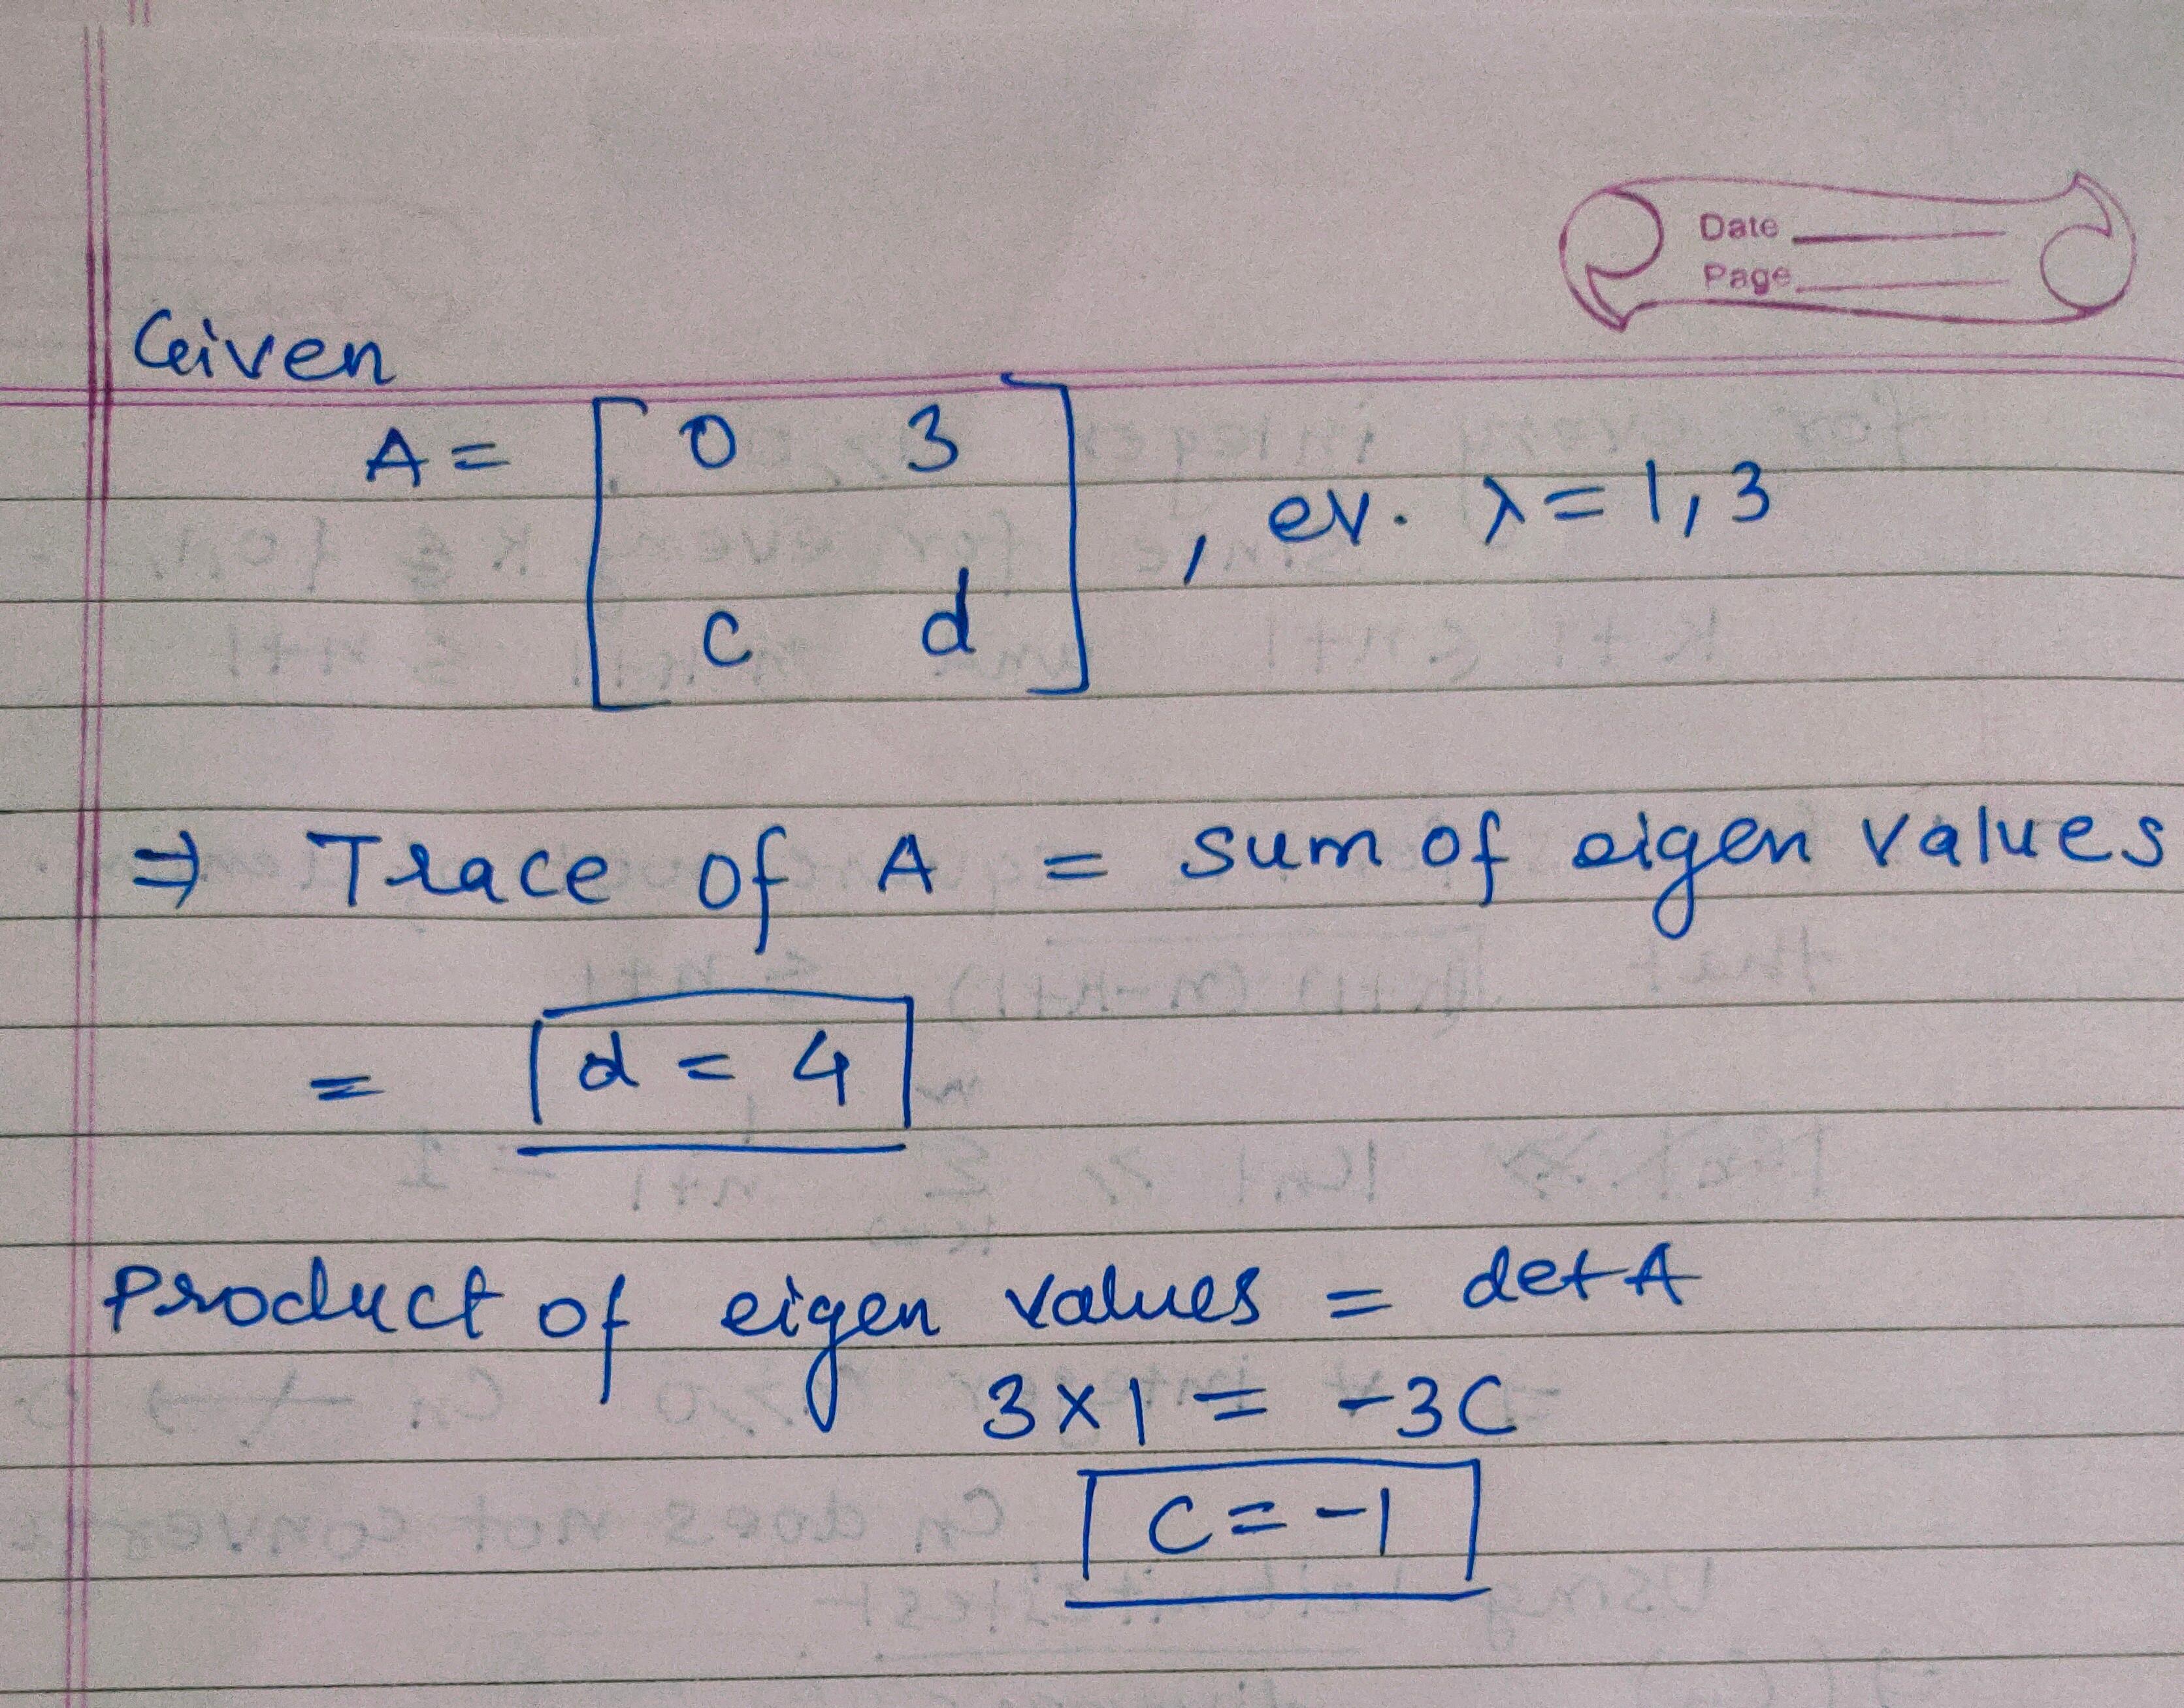 Date
Page
Given
A = [ 0 3
c d ] , ev. λ = 1, 3
⇒ Trace of A = sum of eigen values
= d = 4
Product of eigen values = det A
3 × 1 = -3C
C = -1